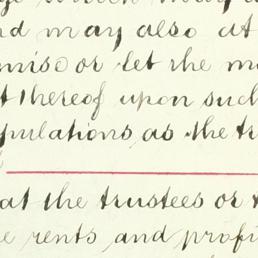 nd may also at
mise or let the m
t thereof upon such
pulations as the tr
at the trustees or
e rents and profi